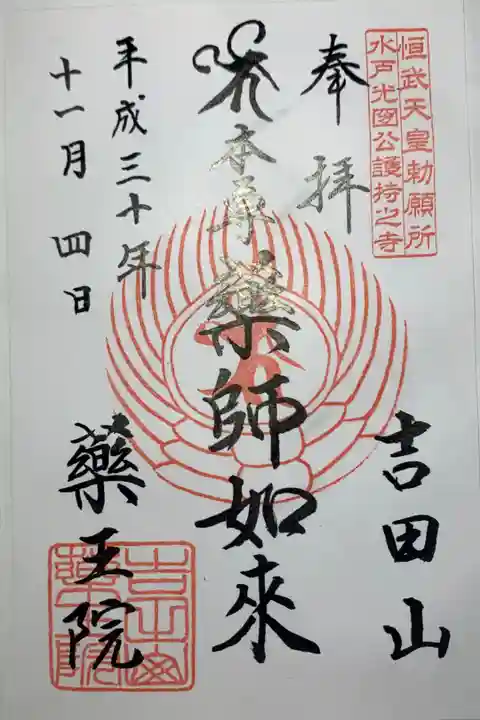 恒武天皇勅願所
水戸光圀公護持之寺
奉拝
吉田山
本尊薬師如來
平成三十年
十一月四日
藥王院